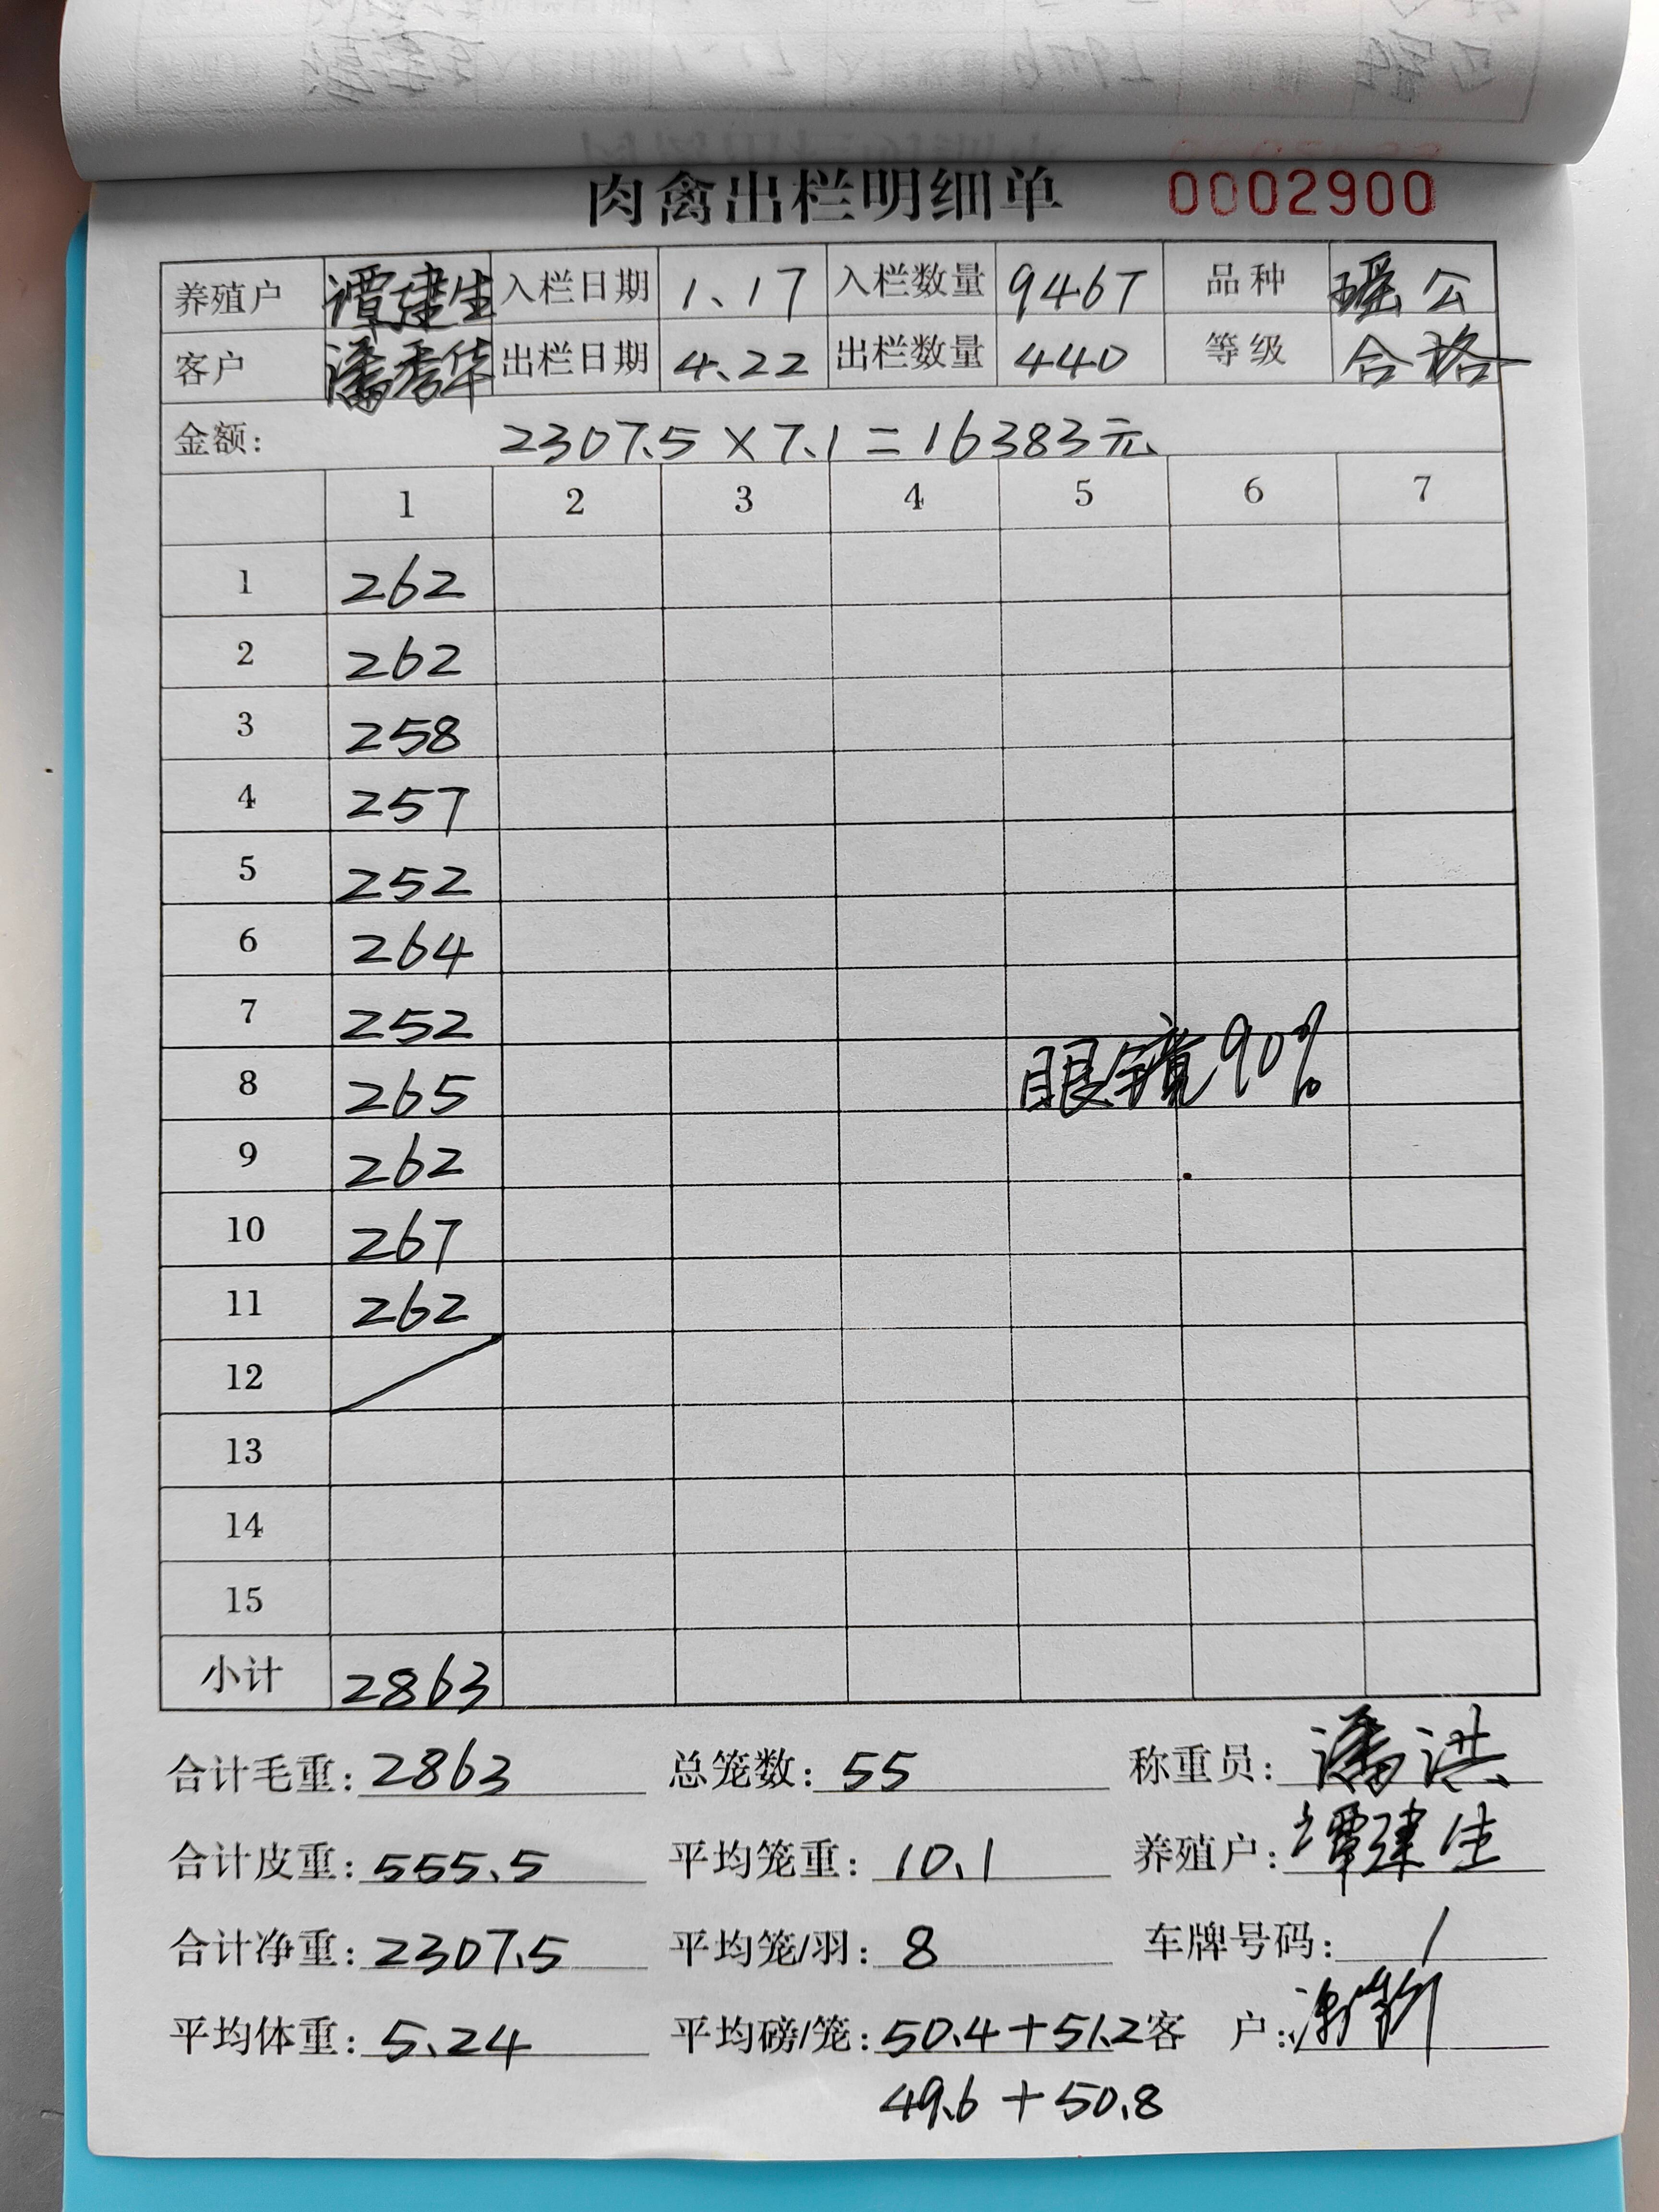 肉禽出栏明细单 0002900
养殖户 谭建生 入栏日期 1.17 入栏数量 9467 品种 瑶公
客户 潘秀华 出栏日期 4.22 出栏数量 440 等级 合格
金额: 2307.5×7.1=16383元
1 2 3 4 5 6 7
1 262
2 262
3 258
4 257
5 252
6 264
7 252
8 265 眼镜90%
9 262
10 267
11 262
12
13
14
15
小计 2863
合计毛重: 2863 总笼数: 55 称重员: 潘洪
合计皮重: 555.5 平均笼重: 10.1 养殖户: 谭建生
合计净重: 2307.5 平均笼/羽: 8 车牌号码: /
平均体重: 5.24 平均磅/笼: 50.4+51.2 客 户:
49.6+50.8